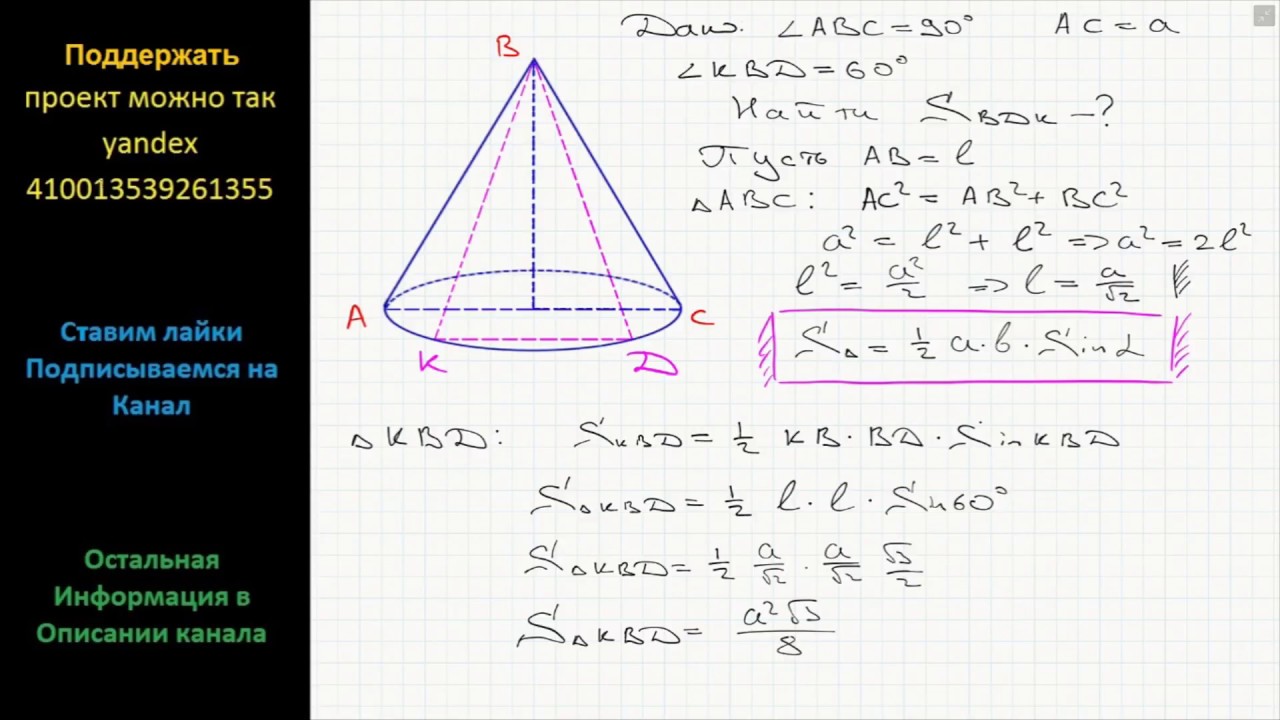 Поддержать
проект можно так
yandex
410013539261355
Ставим лайки
Подписываемся на
Канал
Остальная
Информация в
Описании канала
B
A
C
K
D
Дано. ∠ABC=90° AC=a
∠KBD=60°
Найти S_BDK -?
Пусть AB=l
△ABC: AC²=AB²+BC²
a²=l²+l² => a²=2l²
l²=a²/2 => l=a/√2
S_△=1/2 a·b·Sinα
△KBD: S_KBD=1/2 KB·BD·SinKBD
S_△KBD=1/2 l·l·Sin60°
S_△KBD=1/2 a/√2·a/√2 √3/2
S_△KBD=a²√3/8